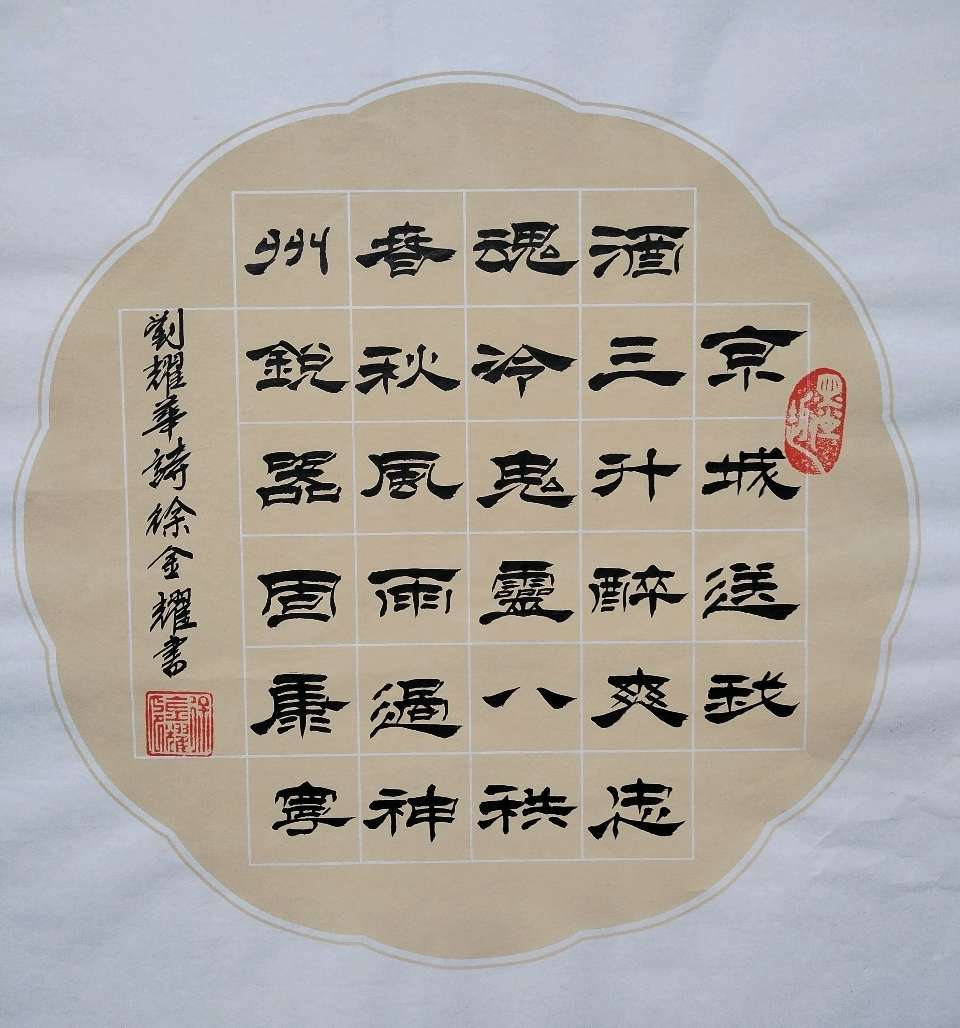 京城送我
酒三升醉爽志
魂冷鬼靈八秩
春秋風雨過神
州銳器固康寧
劉耀華詩徐金耀書
徐金耀印